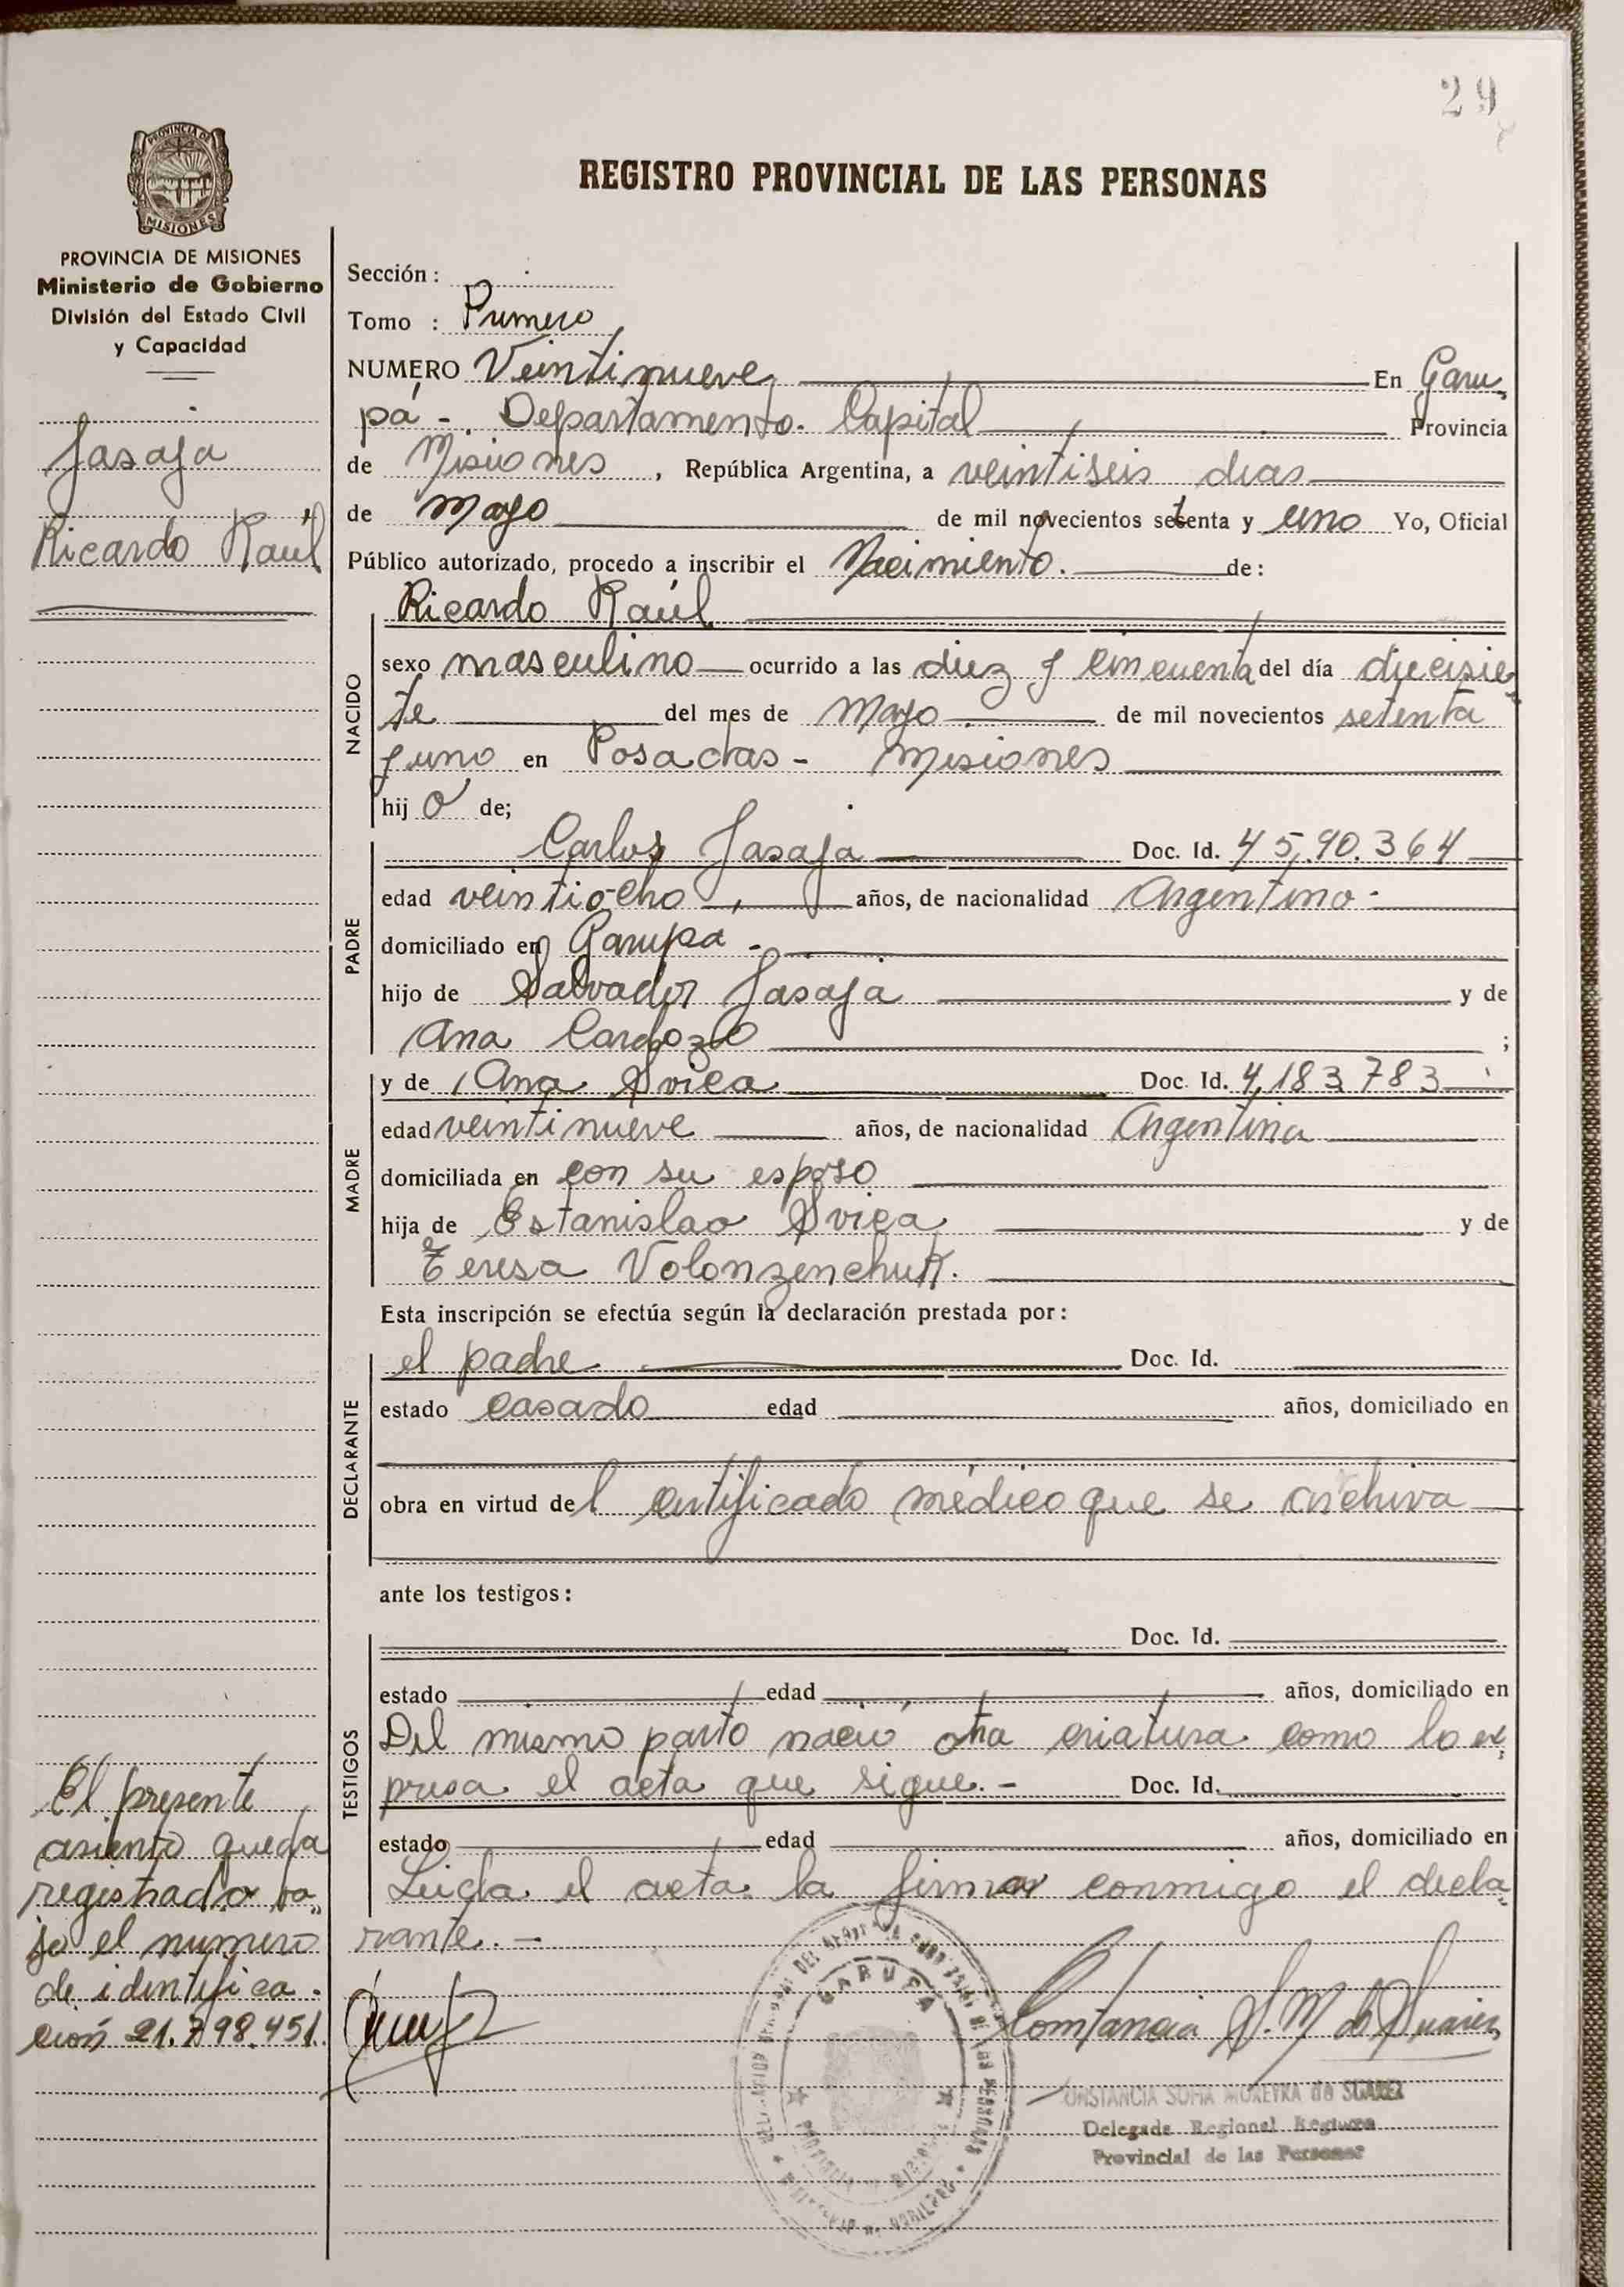 29
PROVINCIA DE
MISIONES
REGISTRO PROVINCIAL DE LAS PERSONAS
PROVINCIA DE MISIONES
Ministerio de Gobierno
División del Estado Civil
y Capacidad
Jasaja
Ricardo Raúl
Sección :
Tomo : Primero
NUMERO Veintinueve En Garu
pá - Departamento. Capital Provincia
de Misiones , República Argentina, a veintiseis dias
de Mayo de mil novecientos setenta y uno Yo, Oficial
Público autorizado, procedo a inscribir el Nacimiento. de:
Ricardo Raúl
NACIDO
sexo masculino ocurrido a las diez y cincuenta del día diecisie
te del mes de Mayo de mil novecientos setenta
y uno en Posadas - Misiones
hij o de;
PADRE
Carlos Jasaja Doc. Id. 45,90.364
edad veintiocho años, de nacionalidad Argentino -
domiciliado en Garupa -
hijo de Salvador Jasaja y de
Ana Cardozo ;
MADRE
y de Ana Svica Doc. Id. 4,183.783
edad veintinueve años, de nacionalidad Argentina
domiciliada en con su esposo
hija de Estanislao Svica y de
Teresa Volonzenchuk.
Esta inscripción se efectúa según la declaración prestada por :
DECLARANTE
el padre Doc. Id.
estado casado edad años, domiciliado en
obra en virtud de l certificado médico que se archiva
ante los testigos :
TESTIGOS
Doc. Id.
estado edad años, domiciliado en
Del mismo parto nació otra criatura como lo ex
presa el acta que sigue. - Doc. Id.
estado edad años, domiciliado en
Leida el acta la firma conmigo el decla
rante. -
El presente
asiento queda
registrado ba
jo el numero
de identifica
ción 21.798.451.
GARUPA
Constancia S. M de Suarez
CONSTANCIA SOFIA MOREYRA de SUAREZ
Delegada Regional Registro
Provincial de las Personas